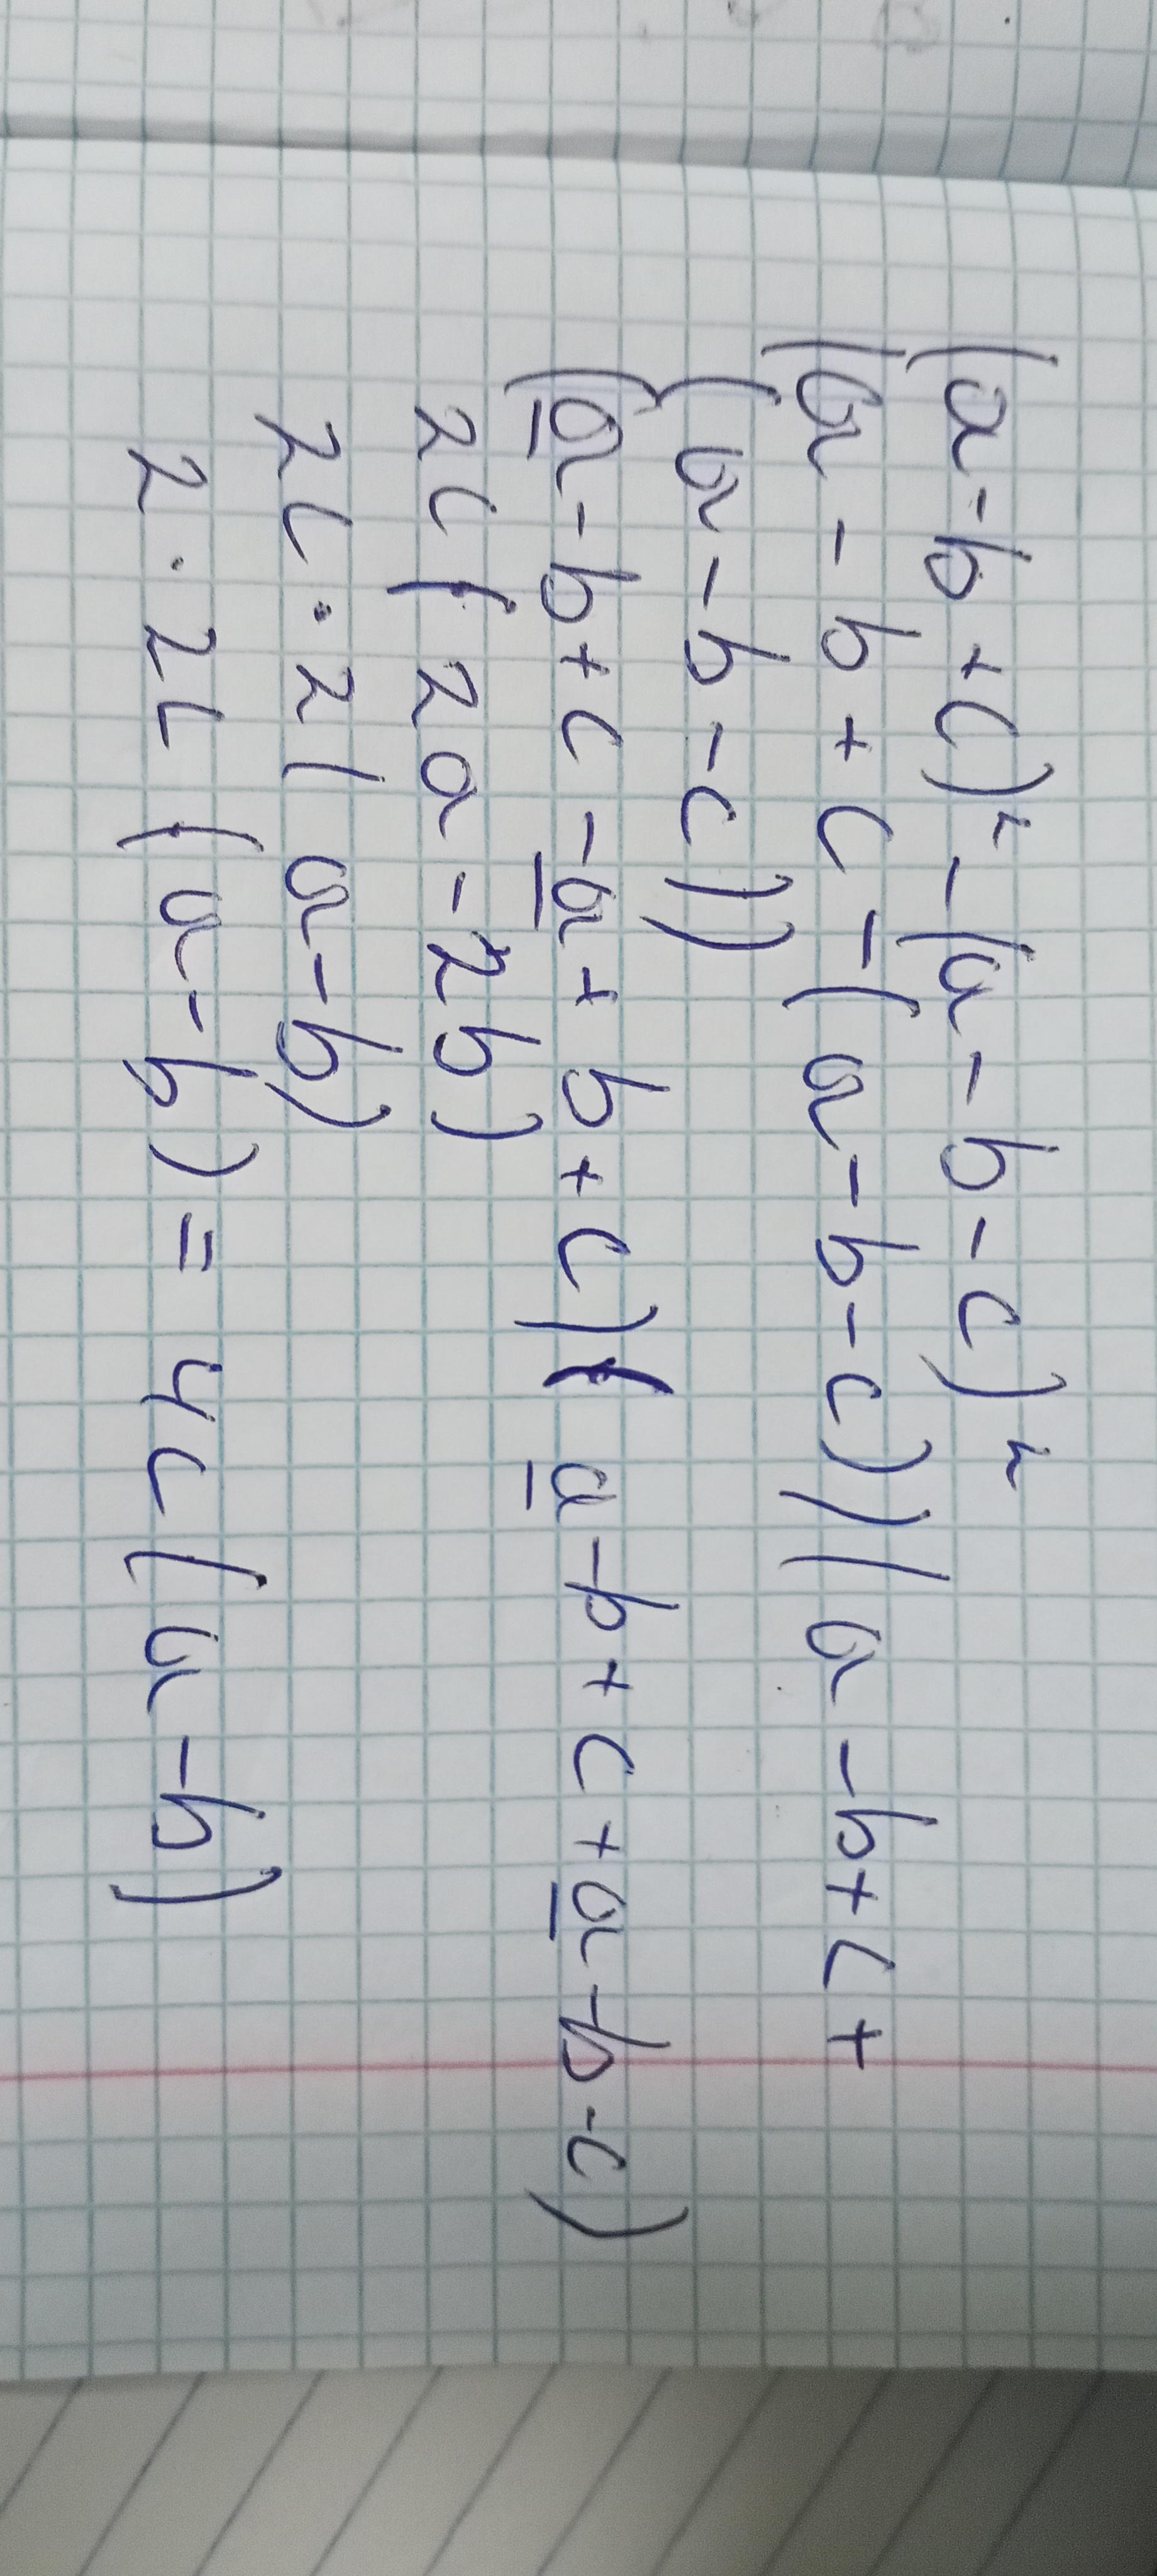 (a-b+c)² - (a-b-c)²
(a-b+c-(a-b-c))(a-b+c+
(a-b-c))
(a-b+c-a+b+c)(a-b+c+a-b-c)
2c(2a-2b)
2c·2(a-b)
2·2c(a-b)=4c(a-b)